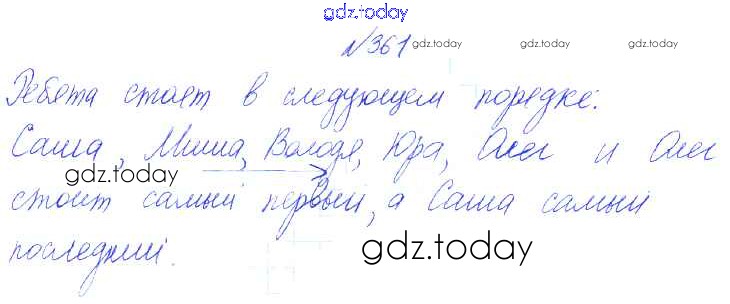 gdz.today
№361 gdz.today gdz.today gdz.today
Ребята стоят в следующем порядке:
Саша, Миша, Володя, Юра, Олег и Олег
gdz.today
стоит самый первый, а Саша самый
gdz.today
последний.